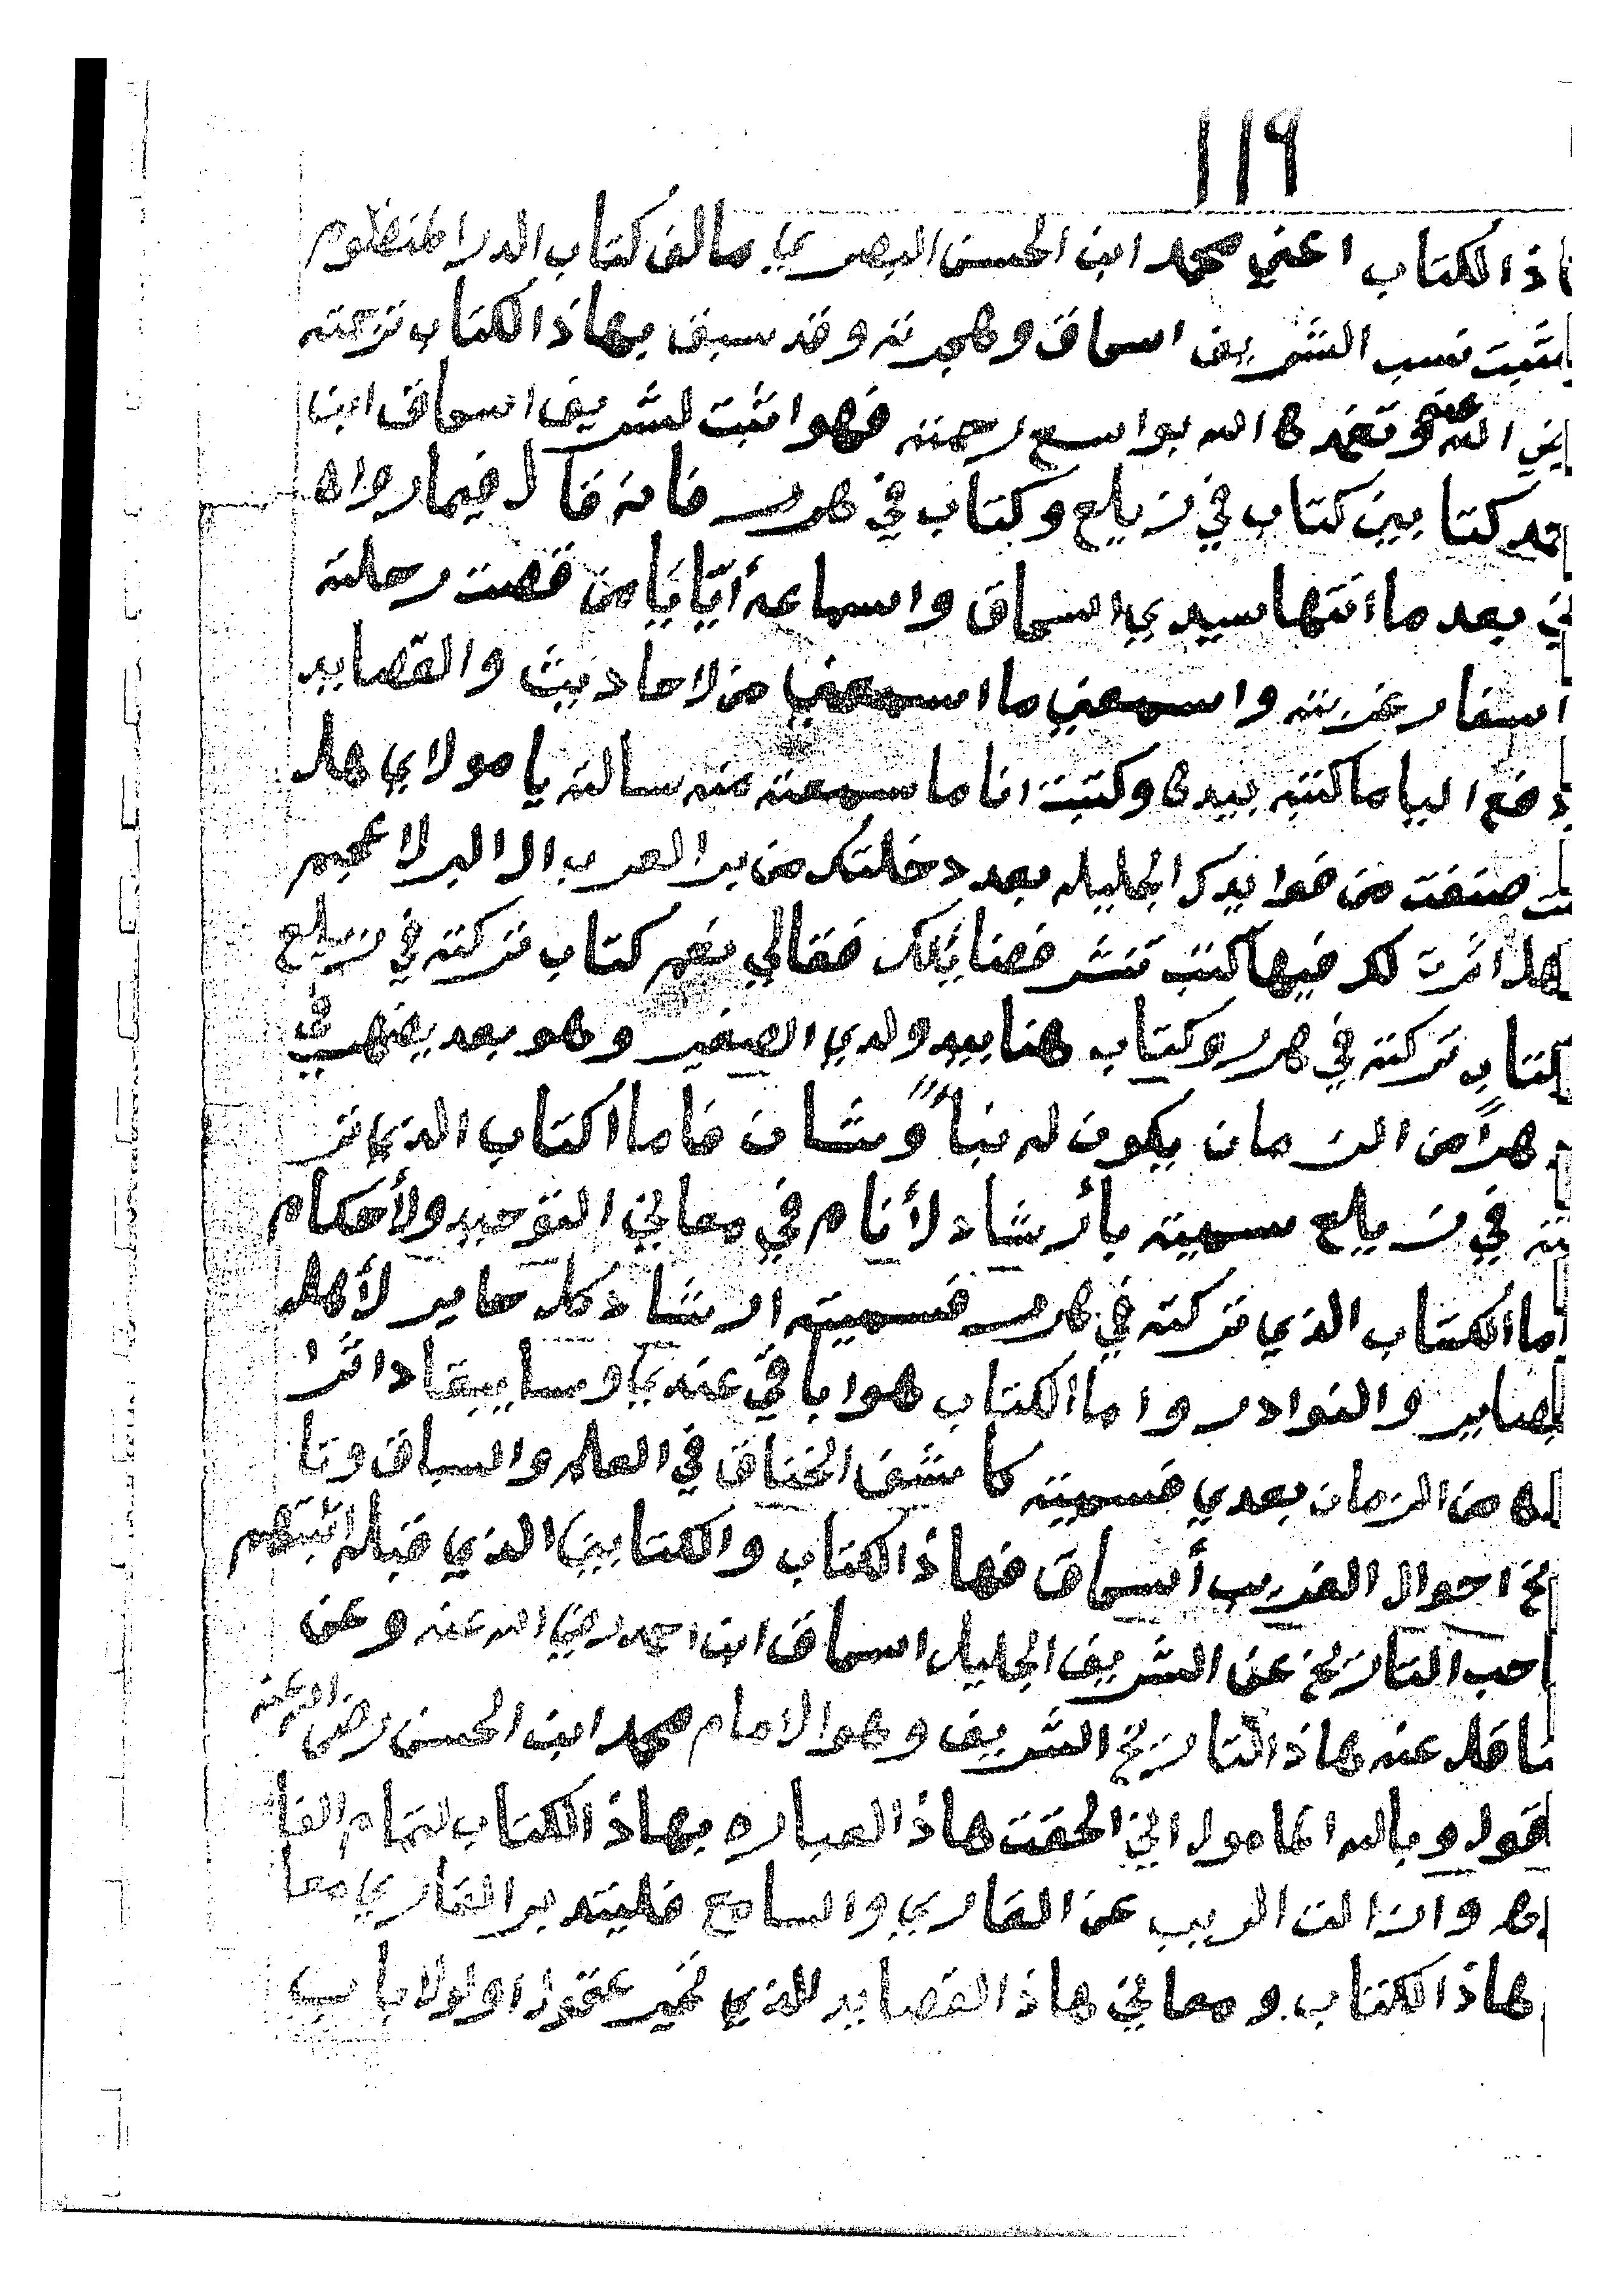 ١١٩
هاذ الكتاب اعني محمد ابن الحسن البصري مالف كتاب الدر المنظوم
يثبت نسب الشريف اسحاق وهجرته وقد سبق بهاذ الكتاب ترجمته
الله عنه وتغمده الله بواسع ارحمته فهو اثبت لشريف اسحاق ابن
كتابين كتاب في زيلع وكتاب في هرر فانه قال فيما رواه
بعد ما انتها سيدي اسحاق واسماعه أيّايا من قصت رحلته
اسفار غربته واسمعني ما اسمعني من لاحاديث والقصايد
دفع اليا ما كتبه بيده وكتبت انا ما سمعته منه سالته يا مولاي هل
صنفت من فوايدك الجليله بعد دخلتك من بر العرب الا البر لاعجيم
هل اثرت لك فيها كتب تنشر فضايلك فقالي نعم كتاب تركته في زيلع
كتاب تركته في هرر وكتاب هنا بيد ولدي الصغير وهو بعد يضهر في
هراً من الزمان يكون له نبأً وشان فاما اكتاب الذي تر
ته في زيلع سميته بأرشاد لأنام في معاني التوحيد ولأحكام
اما الكتاب الذي تركته في هرر فسميته ارشاد كل حاير لأهل
لصاير والنوادر واما الكتاب هوا باقي عندي وسايبقا داثرا
من الزمان بعدي فسميته كاشف الخناق في العلم والسباق وتا
يخ احوال الغريب أسحاق فهاذ الكتاب والكتابين الذي قبله اثبتهم
احب التاريخ عن الشريف الجليل اسحاق ابن احمد رضي الله عنه وعن
ناقل عنه هاذ التاريخ الشريف وهو الامام محمد ابن الحسن رضي الله عنه
اقول وبالله المامول اني الحقت هاذ العباره بهاذ الكتاب لتمام الفا
وازالت الريب عن القاري والسامع فليتدبر القاري معا
هاذ الكتاب ومعاني هاذ القصايد للذي تحير عقول اولولاباب